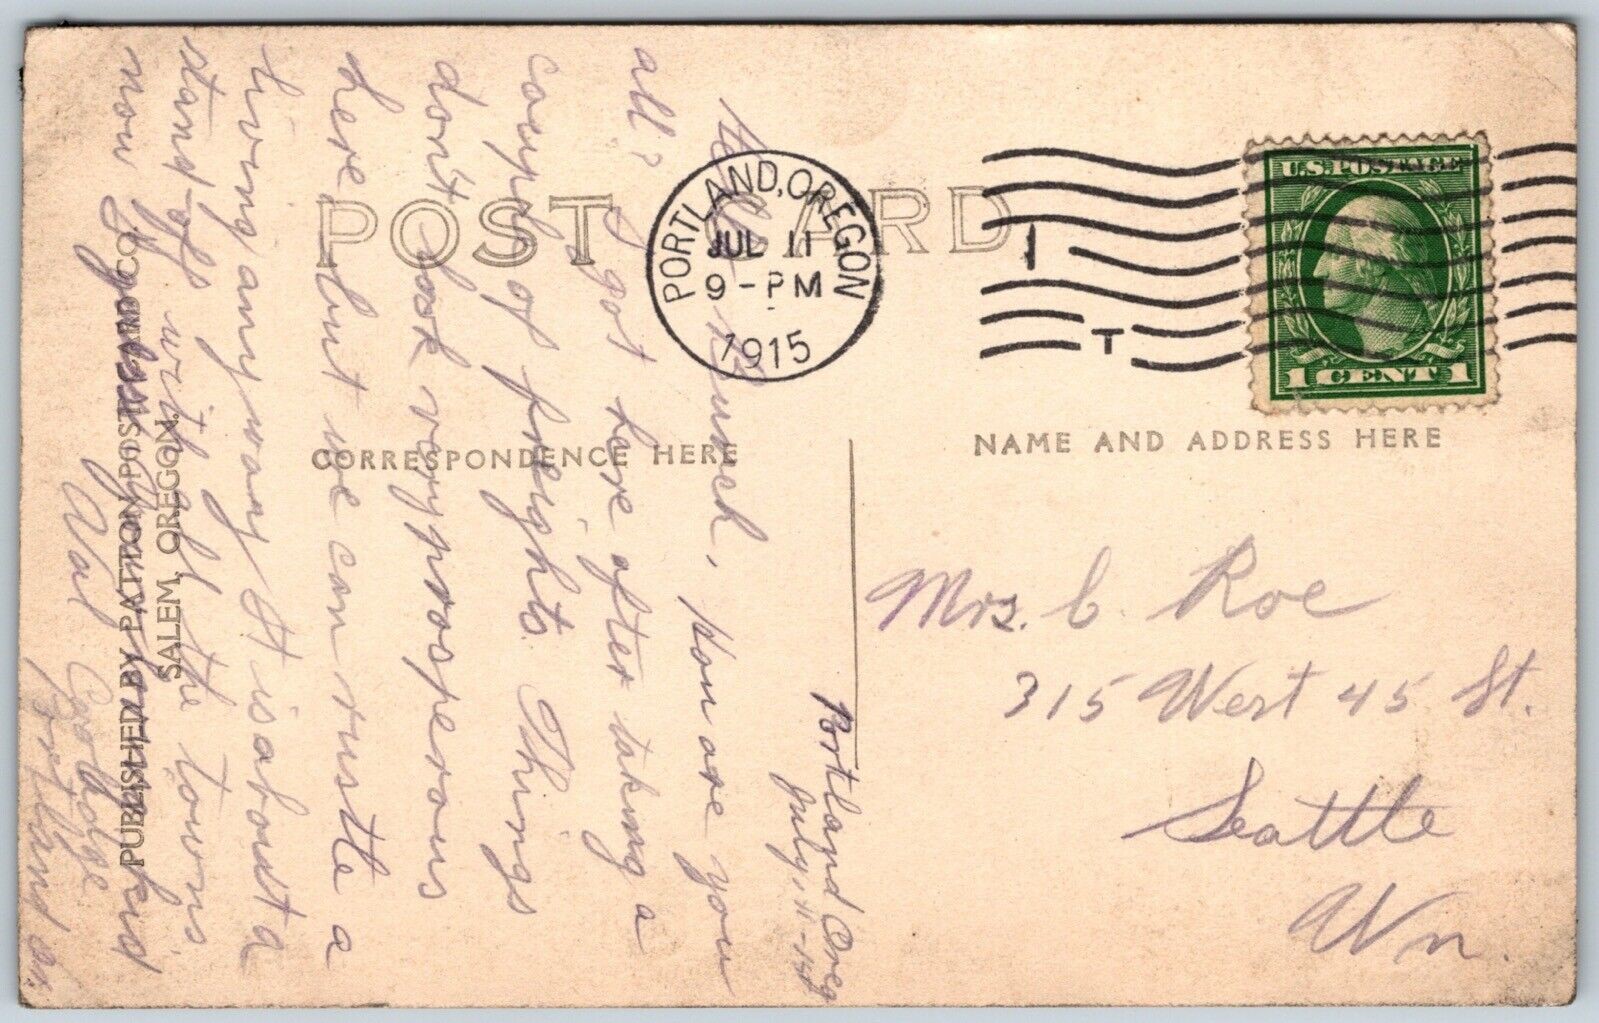 POST CARD
PORTLAND, OREGON
JUL 11
9-PM
1915
1
T
U.S. POSTAGE
1 CENT 1
CORRESPONDENCE HERE
NAME AND ADDRESS HERE
PUBLISHED BY PATTON POST CARD CO.
SALEM, OREGON.
Portland Oreg
July 11-15
Hello Bunch, How are you
all? I got here after taking a
couple of freights. Things
don't look very prosperous
here but we can rustle a
living anyway It is about a
stand-off with all the towns
now
Val
Portland Or.
Mrs. C. Roe
315 West 45 St.
Seattle
Wn.